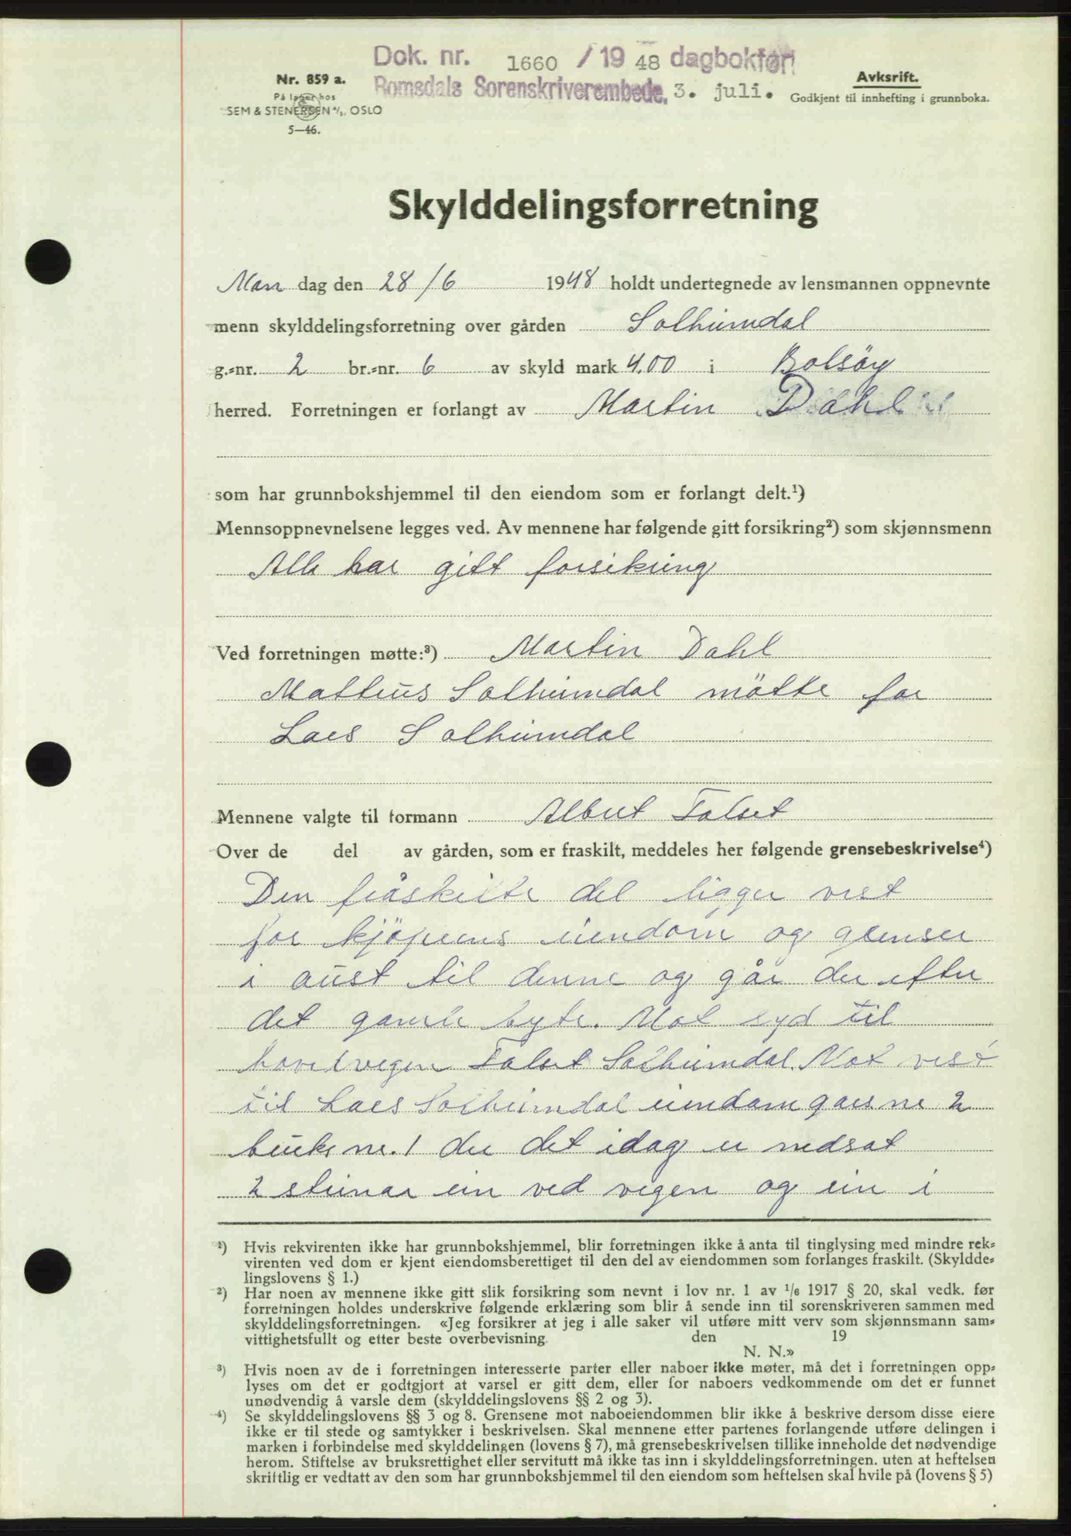 Dok. nr. 1660 / 1948 dagbokført
Romsdals Sorenskriverembede, 3. juli.
Nr. 859 a.
På lager hos
SEM & STENERSEN A/S, OSLO
5—46.
Avskrift.
Godkjent til innhefting i grunnboka.
Skylddelingsforretning
Man dag den 28/6 1948 holdt undertegnede av lensmannen oppnevnte
menn skylddelingsforretning over gården Solheimdal
g.-nr. 2 br.-nr. 6 av skyld mark 4.00 i Bolsöy
herred. Forretningen er forlangt av Martin Dahl
som har grunnbokshjemmel til den eiendom som er forlangt delt.¹)
Mennsoppnevnelsene legges ved. Av mennene har følgende gitt forsikring²) som skjønnsmenn
Alle har gitt forsikring
Ved forretningen møtte:³) Martin Dahl
Mattius Solheimdal mötte for
Lars Solheimdal
Mennene valgte til formann Albert Talset
Over de del av gården, som er fraskilt, meddeles her følgende grensebeskrivelse⁴)
Den fråskilte del ligger vest
for kjöperens eiendom og grenser
i aust til denne og går der efter
det gamle byte. Mot syd til
hovedvegen Talset Solheimdal. Mot vest
til Lars Solheimdal eiendom garsnr 2
bruks nr. 1 der det idag er nedsat
2 steinar ein ved vegen og ein i
¹) Hvis rekvirenten ikke har grunnbokshjemmel, blir forretningen ikke å anta til tinglysing med mindre rek-
virenten ved dom er kjent eiendomsberettiget til den del av eiendommen som forlanges fraskilt. (Skyldde-
lingslovens § 1.)
²) Har noen av mennene ikke gitt slik forsikring som nevnt i lov nr. 1 av 1/6 1917 § 20, skal vedk. før
forretningen holdes underskrive følgende erklæring som blir å sende inn til sorenskriveren sammen med
skylddelingsforretningen. «Jeg forsikrer at jeg i alle saker vil utføre mitt verv som skjønnsmann sam-
vittighetsfullt og etter beste overbevisning. den 19
N. N.»
³) Hvis noen av de i forretningen interesserte parter eller naboer ikke møter, må det i forretningen opp-
lyses om det er godtgjort at varsel er gitt dem, eller for naboers vedkommende om det er funnet
unødvendig å varsle dem (skylddelingslovens §§ 2 og 3).
⁴) Se skylddelingslovens §§ 3 og 8. Grensene mot naboeiendommen blir ikke å beskrive dersom disse eiere
ikke er til stede og samtykker i beskrivelsen. Skal mennene etter partenes forlangende utføre delingen i
marken i forbindelse med skylddelingen (lovens § 7), må grensebeskrivelsen tillike inneholde det nødvendige
herom. Stiftelse av bruksrettighet eller servitutt må ikke tas inn i skylddelingsforretningen. uten at heftelsen
skriftlig er vedtatt av den som har grunnbokshjemmel til den eiendom som heftelsen skal hvile på (lovens § 5)